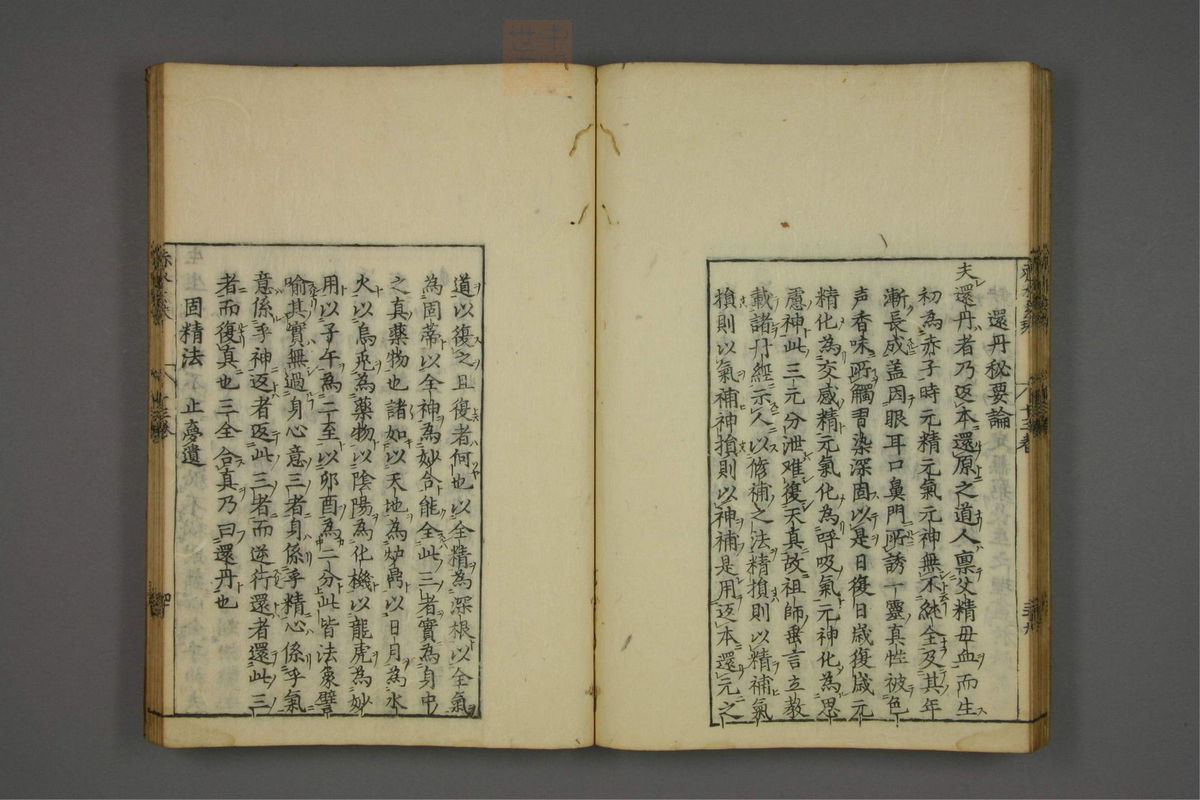 還丹秘要論
夫還丹者乃返本還原之道人禀父精毋血而生
初為赤子時元精元氣元神無不純全及其年
漸長成盖因眼耳口鼻門所誘一靈真性被色
声香味所觸習染深固以是日復日歳復歳元
精化為交感精元氣化為呼吸氣元神化為思
慮神此三元分泄难復天真故祖師垂言立教
載諸丹經示人以修補之法精損則以精補氣
損則以氣補神損則以神補是用返本還元之
道以復之且復者何也以全精為深根以全氣
為固蒂以全神為妙合能全此三者實為身中
之真藥物也諸如以天地為炉鼎以日月為水
火以烏兎為藥物以陰陽為化機以龍虎為妙
用以子午為二至以卯酉為二分此皆法象譬
喻其實無過身心意三者身係乎精心係乎氣
意係乎神返者返此三者而逆行還者還此三
者而復真也三全合真乃曰還丹也
固精法 止夣遺